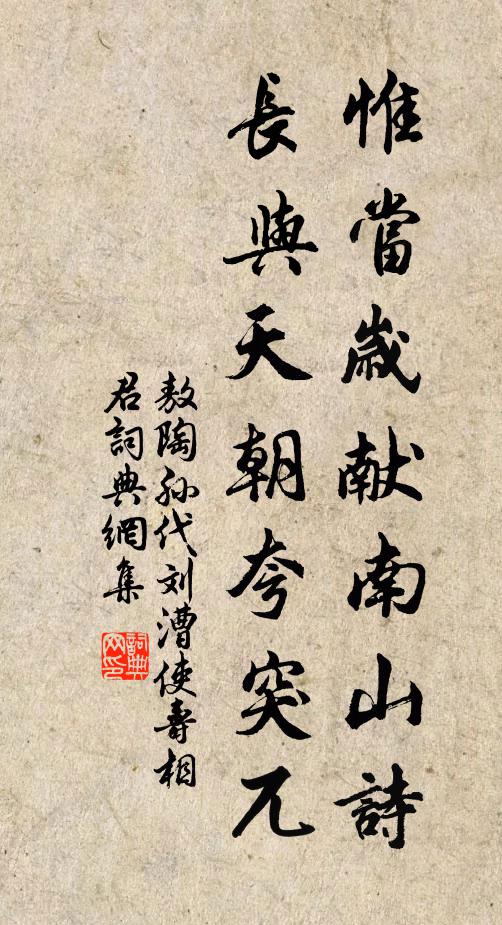 惟當歲献南山詩
長與天朝夸突兀
敖陶孙代刘漕使壽相
君詞典網集
詞典
网印